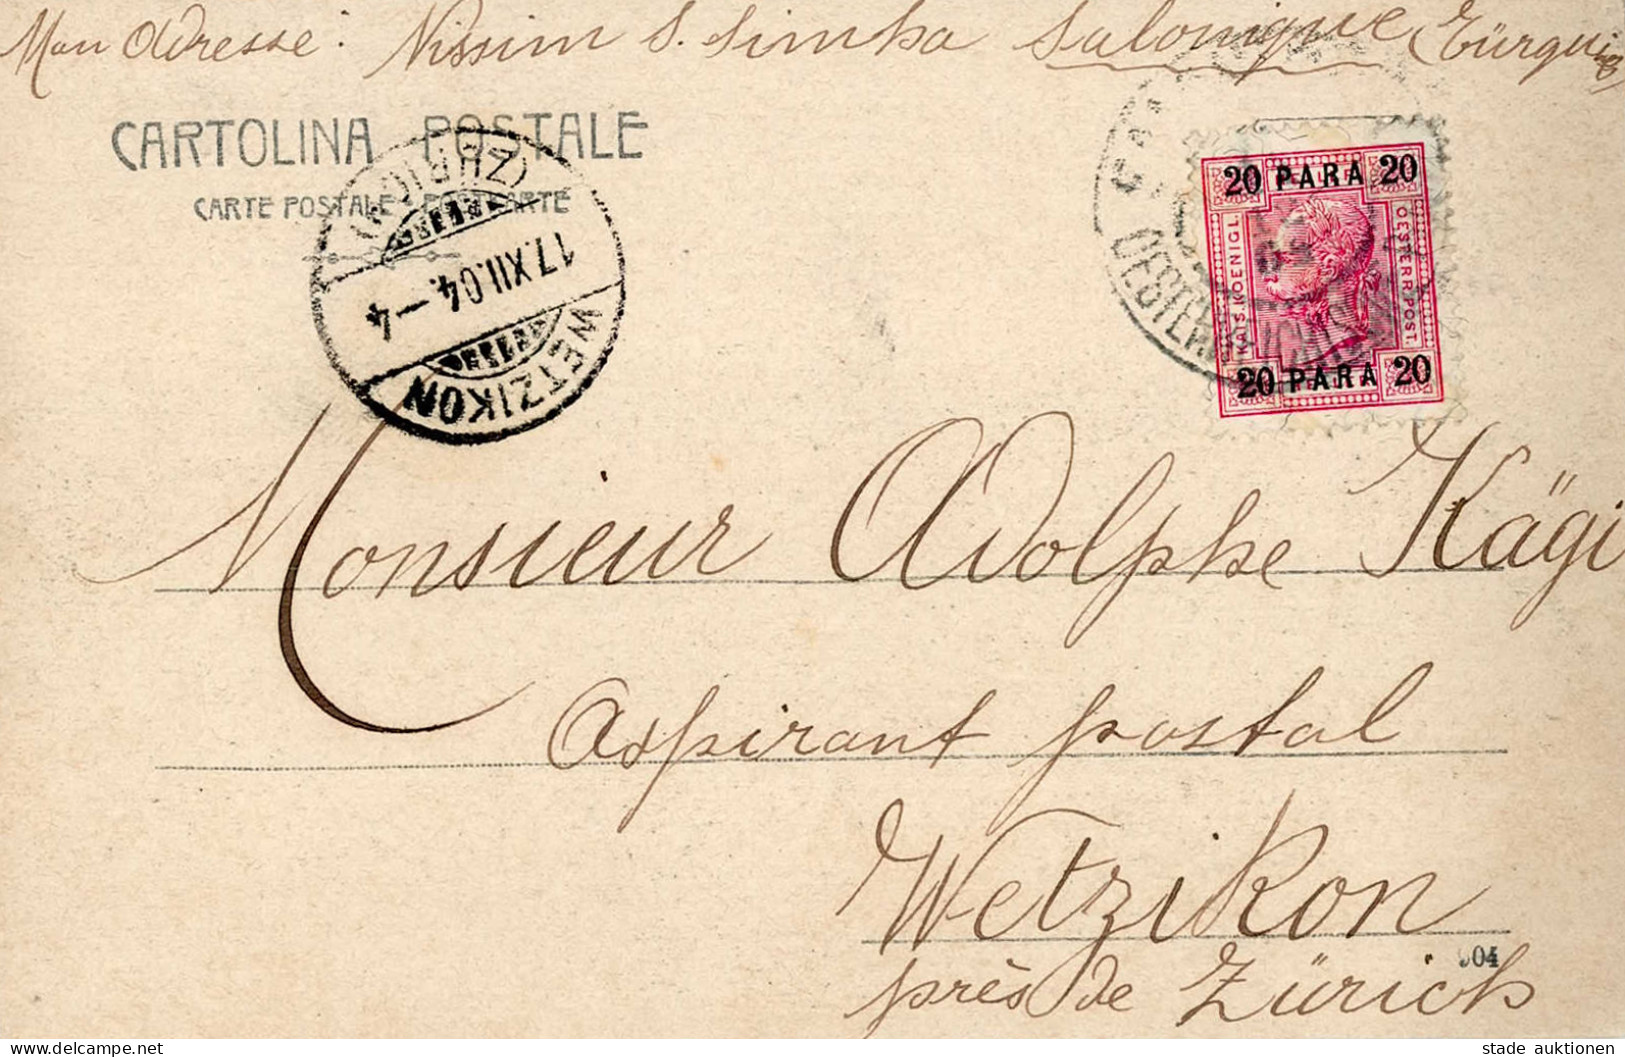 Mon Adresse: Nissim S. Simha Salonique (Türquie)
CARTOLINA POSTALE
CARTE POSTALE - POSTKARTE
(ZÜRICH)
17.XII.04.-4
WETZIKON
20 PARA 20
KAIS. KOENIGL. OESTERR. POST.
20 PARA 20
Monsieur Adolphe Kägi
Aspirant postal
Wetzikon
904
près de Zürich
stade auktionen